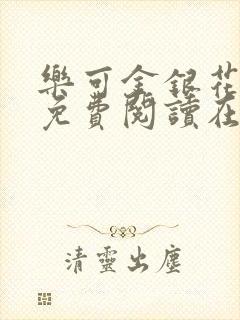 樂可金銀花
免費閱讀在
清靈出塵